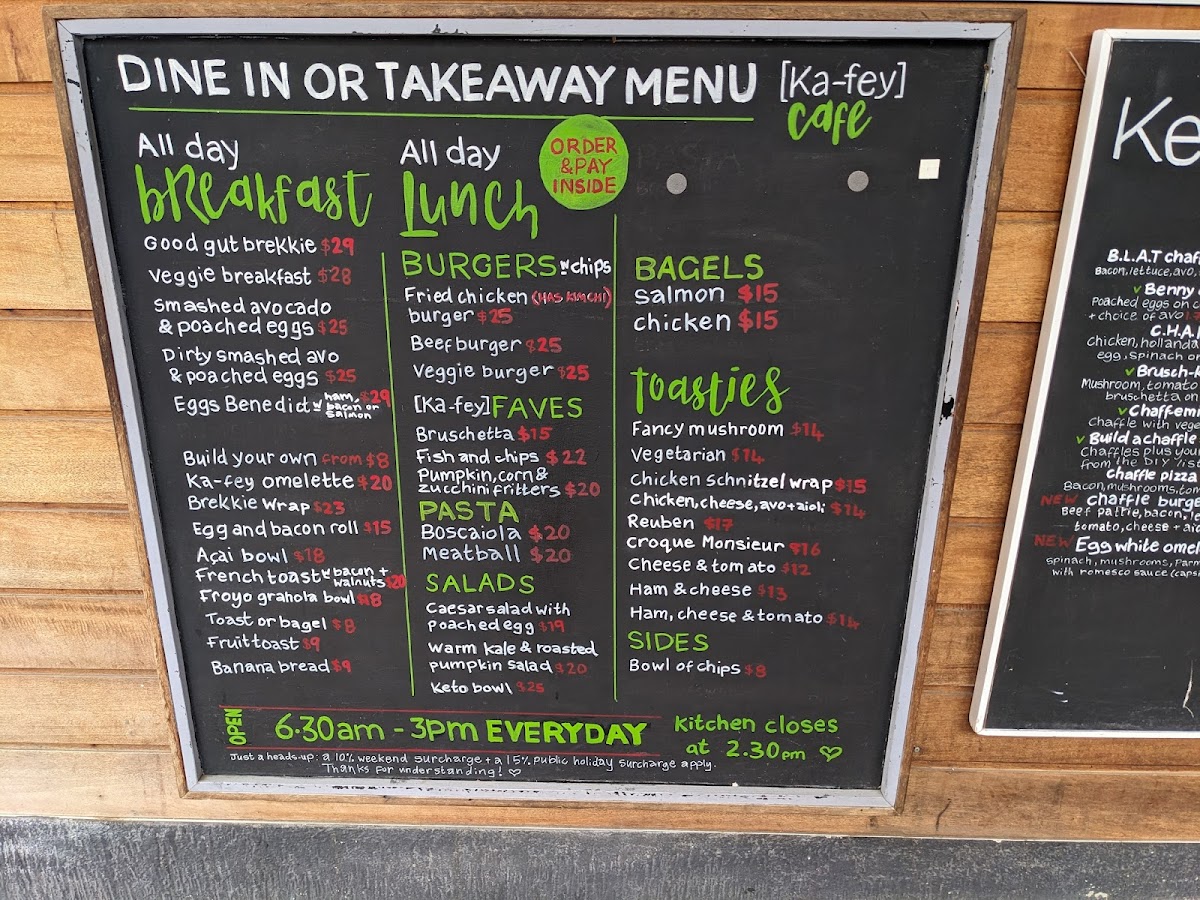 DINE IN OR TAKEAWAY MENU [Ka-fey]
cafe
All day
breakfast
Good gut brekkie $29
Veggie breakfast $28
Smashed avocado
& poached eggs $25
Dirty smashed avo
& poached eggs $25
Eggs Benedict w ham, $29
bacon or
salmon
Build your own from $8
Ka-fey omelette $20
Brekkie wrap $23
Egg and bacon roll $15
Açai bowl $18
French toast w bacon +
walnuts $20
Froyo granola bowl $18
Toast or bagel $8
Fruit toast $9
Banana bread $9
All day
Lunch
ORDER
& PAY
INSIDE
BURGERS w chips
Fried chicken (HAS KIMCHI)
burger $25
Beef burger $25
Veggie burger $25
[Ka-fey] FAVES
Bruschetta $15
Fish and chips $22
Pumpkin, corn &
zucchini fritters $20
PASTA
Boscaiola $20
Meatball $20
SALADS
Caesar salad with
poached egg $19
Warm kale & roasted
pumpkin salad $20
Keto bowl $25
BAGELS
Salmon $15
chicken $15
Toasties
Fancy mushroom $14
Vegetarian $14
Chicken schnitzel wrap $15
Chicken, cheese, avo + aioli $14
Reuben $17
Croque Monsieur $16
Cheese & tomato $12
Ham & cheese $13
Ham, cheese & tomato $14
SIDES
Bowl of chips $8
OPEN
6.30am - 3pm EVERYDAY
Kitchen closes
at 2.30pm
Just a heads-up: a 10% weekend surcharge + a 15% public holiday surcharge apply.
Thanks for understanding!
Ke
B.L.A.T chaf
Bacon, lettuce, avo,
Benny
Poached eggs on c
+ choice of avo
C.H.A.
chicken, hollanda
egg, spinach on
Brusch-k
Mushroom, tomato
bruschetta on
Chaff-emi
Chaffle with vege
Build a chaffle
Chaffles plus your
from the DIY lis
Chaffle pizza
Bacon, mushrooms, tom
NEW chaffle burge
Beef pattie, bacon, le
tomato, cheese + aio
NEW Egg white omel
spinach, mushrooms, parm
with romesco sauce (caps